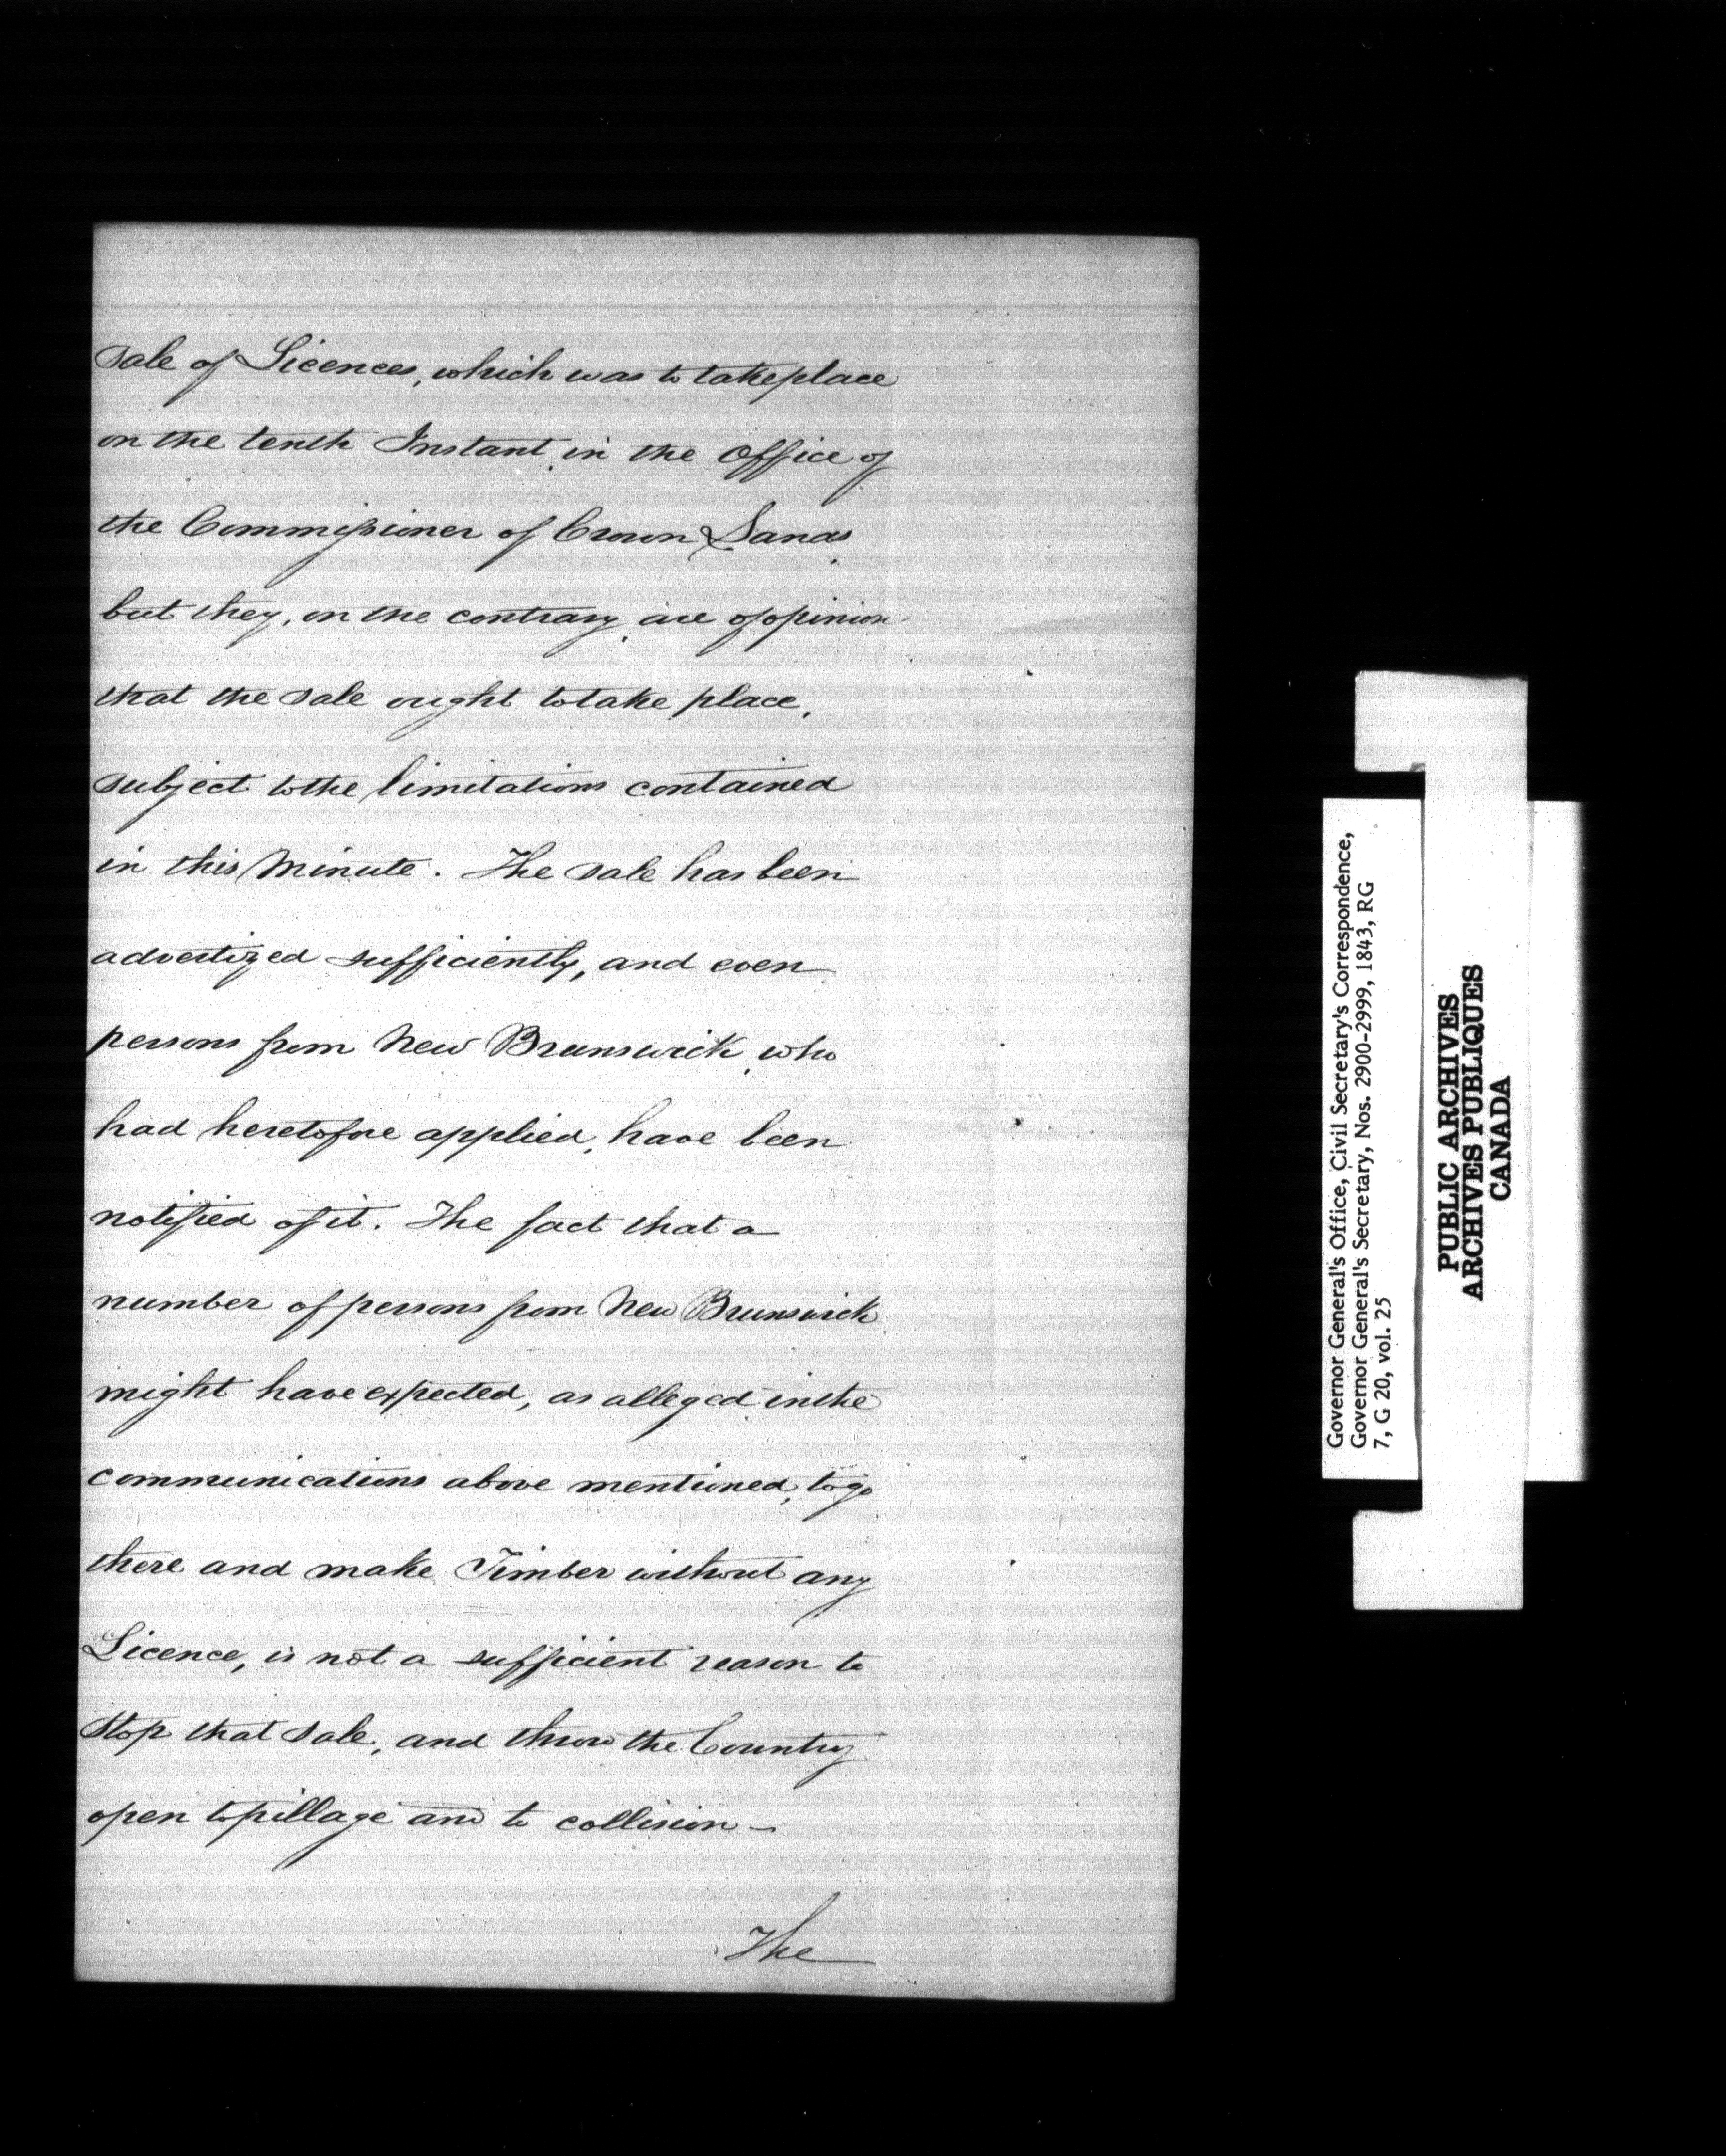 sale of Licences, which was to take place
on the tenth Instant, in the Office of
the Commissioner of Crown Lands,
but they, on the contrary, are of opinion
that the sale ought to take place,
subject to the limitations contained
in this Minute. The sale has been
advertized sufficiently, and even
persons from New Brunswick, who
had heretofore applied, have been
notified of it. The fact that a
number of persons from New Brunswick
might have expected, as alleged in the
communications above mentioned, to go
there and make Timber without any
Licence, is not a sufficient reason to
stop that sale, and throw the Country
open to pillage and to collision –
The
Governor General's Office, Civil Secretary's Correspondence,
Governor General's Secretary, Nos. 2900-2999, 1843, RG
7, G 20, vol. 25
PUBLIC ARCHIVES
ARCHIVES PUBLIQUES
CANADA